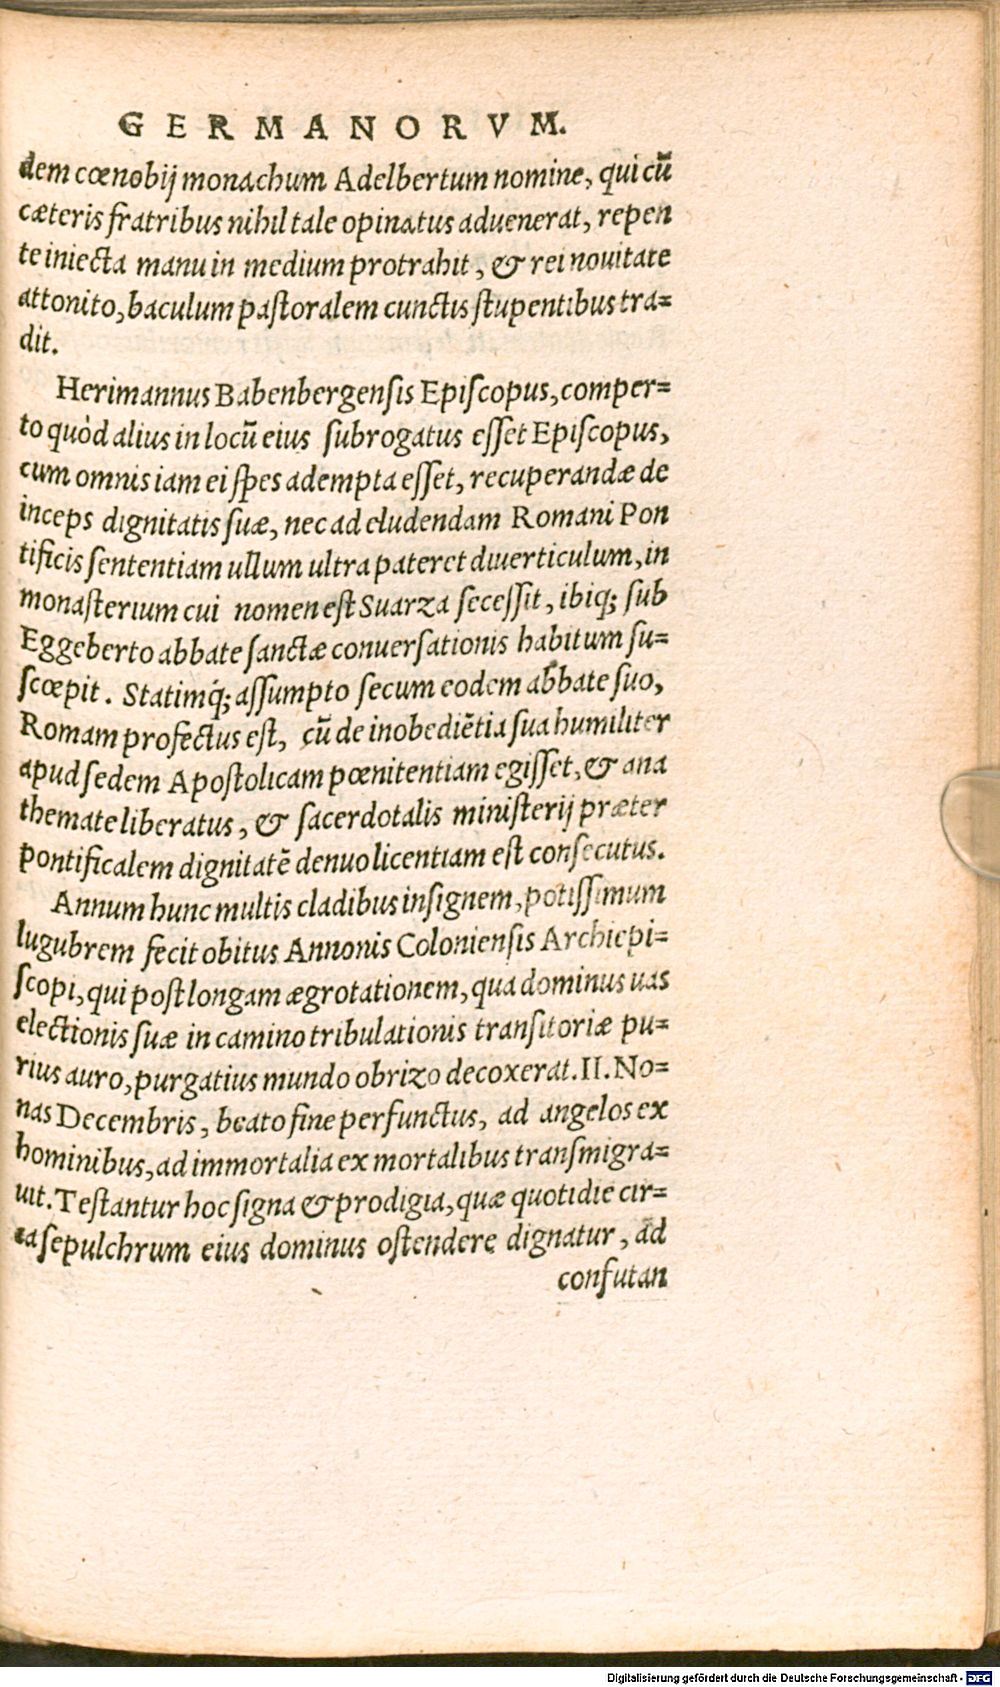 GERMANORVM.
dem cœnobij monachum Adelbertum nomine, qui cū
cæteris fratribus nihil tale opinatus aduenerat, repen
te iniecta manu in medium protrahit, & rei nouitate
attonito, baculum pastoralem cunctis stupentibus tra=
dit.
Herimannus Babenbergensis Episcopus, comper=
to quòd alius in locū eius subrogatus esset Episcopus,
cum omnis iam ei spes adempta esset, recuperandæ de
inceps dignitatis suæ, nec ad eludendam Romani Pon
tificis sententiam ullum ultra pateret diuerticulum, in
monasterium cui nomen est Suarza secessit, ibiq; sub
Eggeberto abbate sanctæ conuersationis habitum su=
scœpit. Statimq́; assumpto secum eodem abbate suo,
Romam profectus est, cū de inobediētia sua humiliter
apud sedem Apostolicam pœnitentiam egisset, & ana
themate liberatus, & sacerdotalis ministerij præter
pontificalem dignitatē denuo licentiam est consecutus.
Annum hunc multis cladibus insignem, potissimum
lugubrem fecit obitus Annonis Coloniensis Archiepi=
scopi, qui post longam ægrotationem, qua dominus uas
electionis suæ in camino tribulationis transitoriæ pu=
rius auro, purgatius mundo obrizo decoxerat. II. No=
nas Decembris, beato fine perfunctus, ad angelos ex
hominibus, ad immortalia ex mortalibus transmigra=
uit. Testantur hoc signa & prodigia, quæ quotidie cir=
ca sepulchrum eius dominus ostendere dignatur, ad
confutan
Digitalisierung gefördert durch die Deutsche Forschungsgemeinschaft - DFG